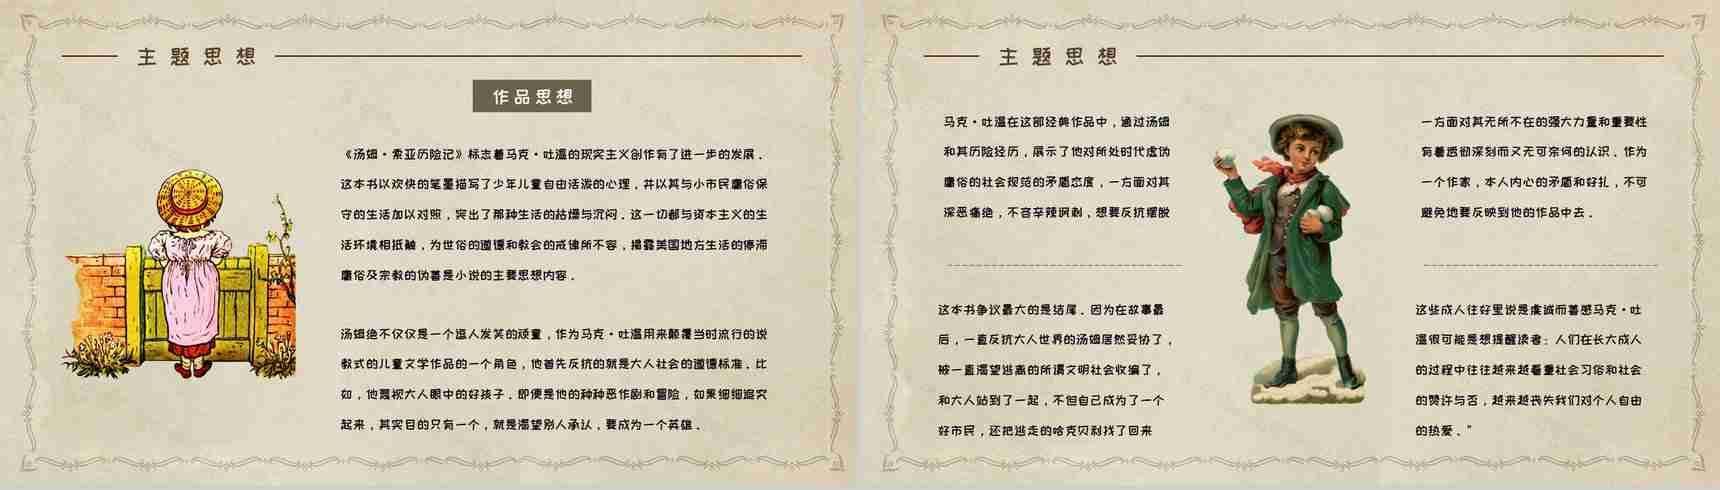 主题思想
作品思想
《汤姆·索亚历险记》标志着马克·吐温的现实主义创作有了进一步的发展.
这本书以欢快的笔墨描写了少年儿童自由活泼的心理，并以其与小市民庸俗保
守的生活加以对照，突出了那种生活的枯燥与沉闷.这一切都与资本主义的生
活环境相抵触，为世俗的道德和教会的戒律所不容，揭露美国地方生活的停滞
庸俗及宗教的伪善是小说的主要思想内容.
汤姆绝不仅仅是一个逗人发笑的顽童，作为马克·吐温用来颠覆当时流行的说
教式的儿童文学作品的一个角色，他首先反抗的就是大人社会的道德标准.比
如，他蔑视大人眼中的好孩子.即便是他的种种恶作剧和冒险，如果细细追究
起来，其实目的只有一个，就是渴望别人承认，要成为一个英雄.
主题思想
马克·吐温在这部经典作品中，通过汤姆
和其历险经历，展示了他对所处时代虚伪
庸俗的社会规范的矛盾态度，一方面对其
深恶痛绝，不容辛辣讽刺，想要反抗摆脱
一方面对其无所不在的强大力量和重要性
有着透彻深刻而又无可奈何的认识.作为
一个作家，本人内心的矛盾和挣扎，不可
避免地要反映到他的作品中去.
这本书争议最大的是结尾.因为在故事最
后，一直反抗大人世界的汤姆居然妥协了，
被一直渴望逃离的所谓文明社会收编了，
和大人站到了一起，不但自己成为了一个
好市民，还把逃走的哈克贝利找了回来
这些成人往好里说是虔诚而善感马克·吐
温很可能是想提醒读者：人们在长大成人
的过程中往往越来越看重社会习俗和社会
的赞许与否，越来越丧失我们对个人自由
的热爱.”